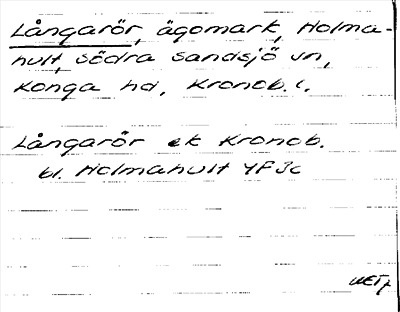 Långarör, ägomark, Holma-
hult, södra sandsjö sn,
Konga hd, Kronob. l.
Långarör ek Kronob.
bl. Holmahult 4F3c